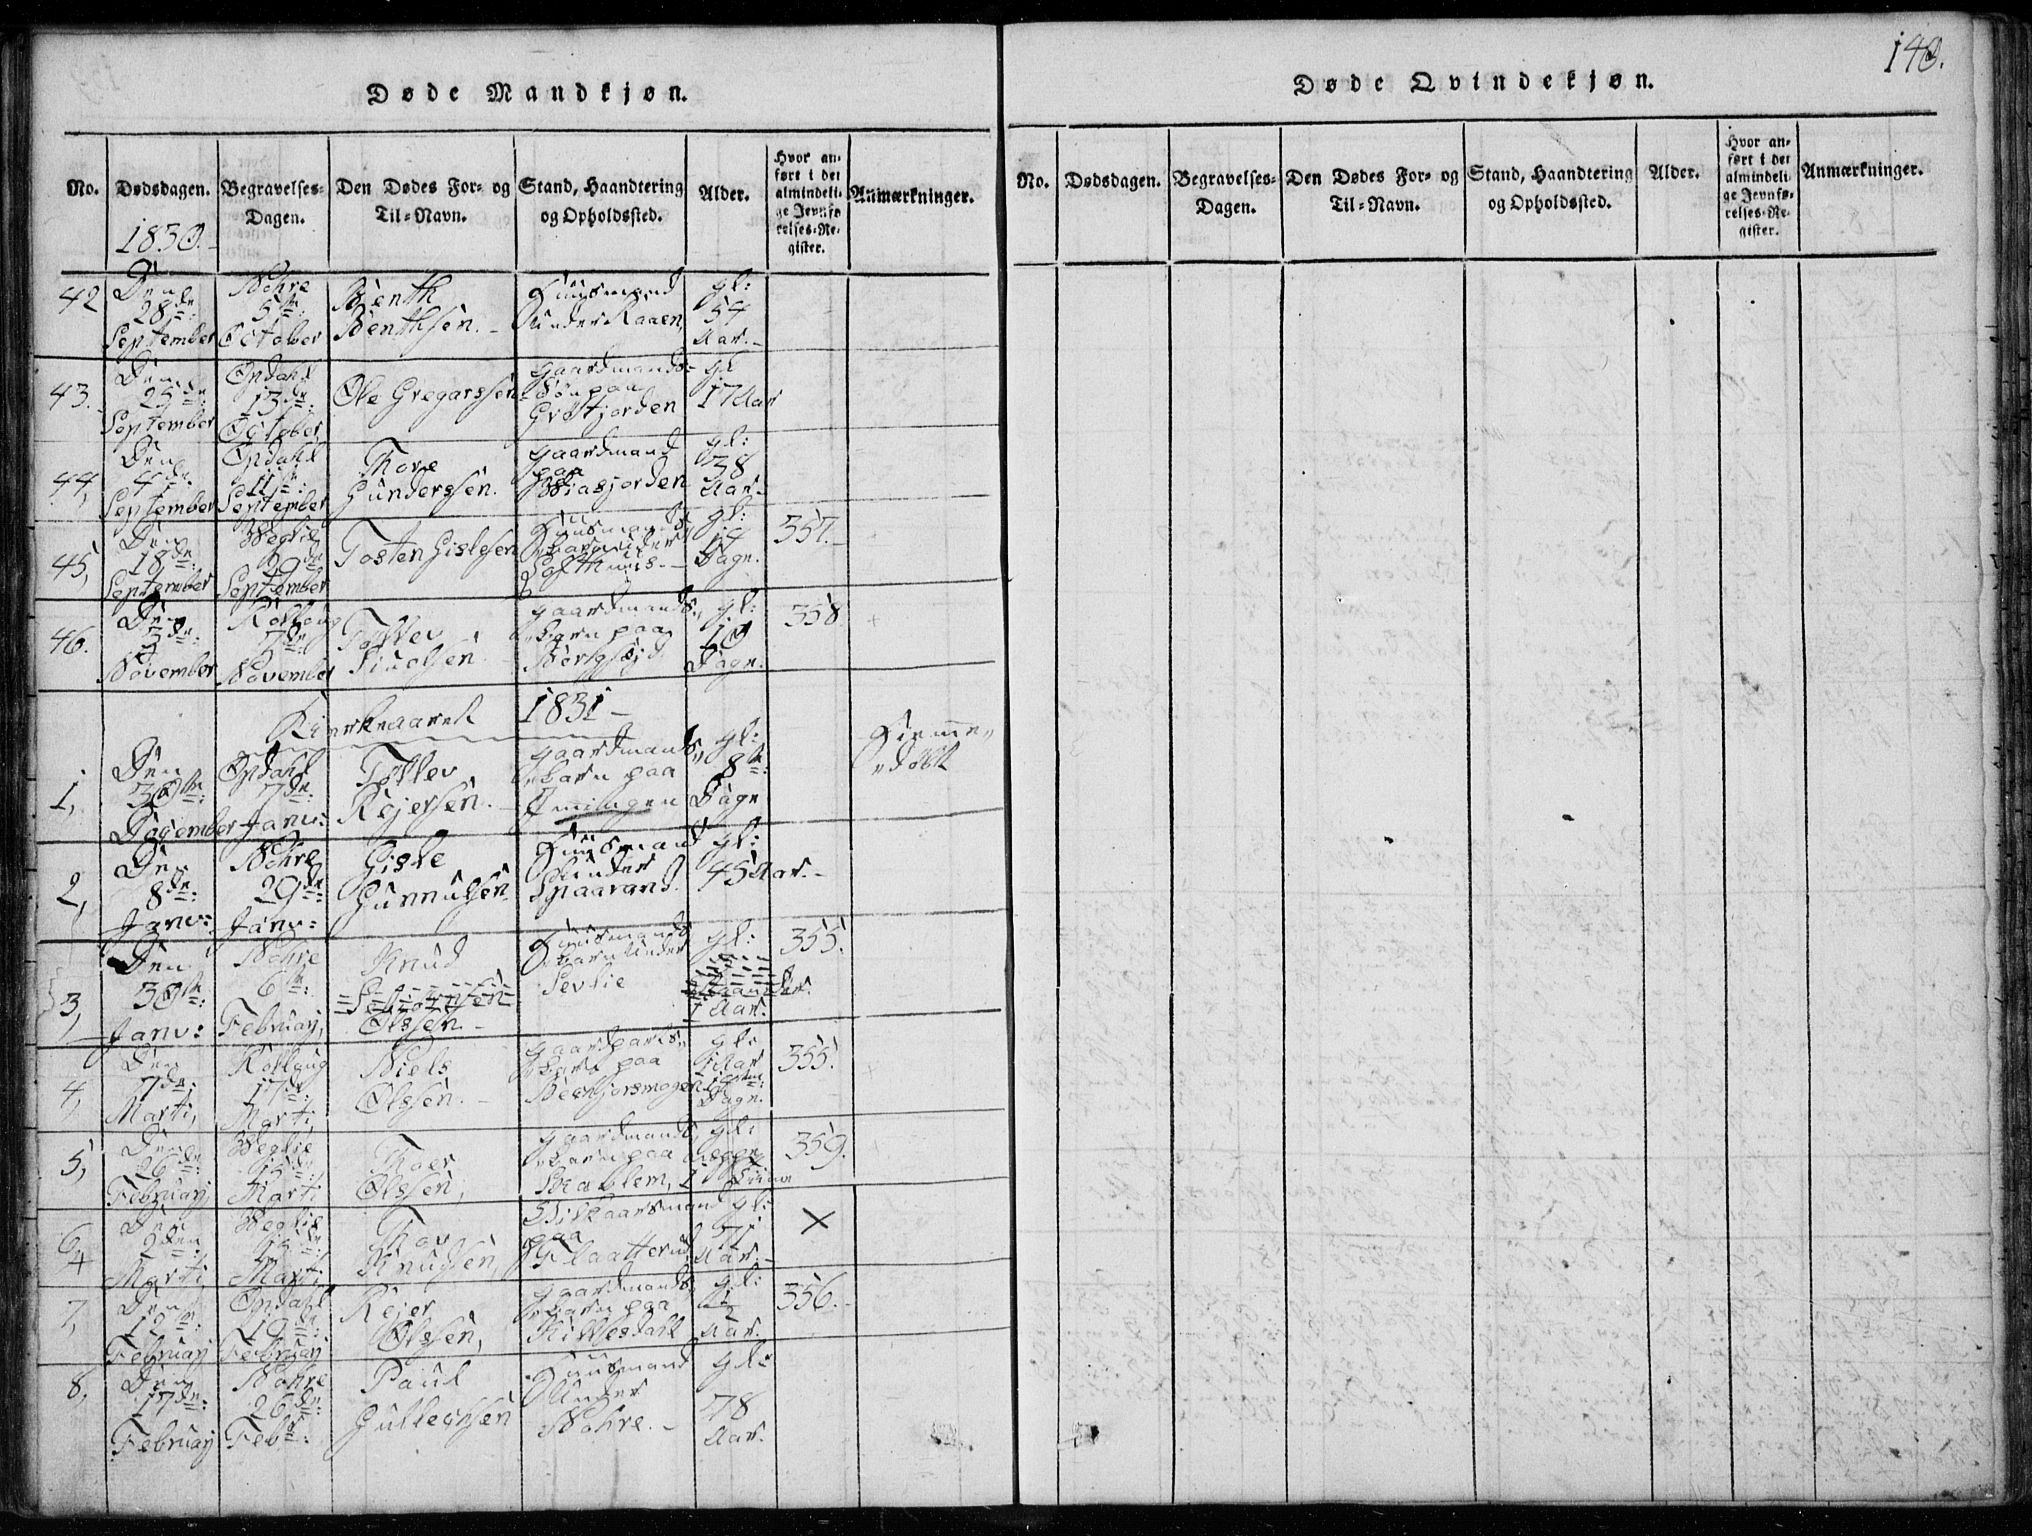 Døde Mandkjøn.
No.
Dødsdagen.
Begravelses-Dagen.
Den Dødes For- og Til-Navn.
Stand, Haandtering og Opholdssted.
Alder.
Hvor anført i det almindelige Jevnførelses-Register.
Anmærkninger.
1830.
42 Den 28de: September
Nohre 5te: October
Benth Benthsen.
Huusmand under Raaen,
gl: 54 Aar.
43. Den 25de: September
Opdahl 13de: October
Ole Gregarssen
Gaardmands-Søn paa Grøtjorden
gl 17 Aar
44, Den 4de: September
Opdahl 11te: September
Thore Gunderssen.
Gaardmand paa
gl: 38 Aar
45, Den 18de: September
Weglie 29de September
Tosten Gislesen
Huusmands Barn under
gl: 14 Dage.
357.
46. Den 3de: November
Rollaug 7de: November
Tollev
Gaardmands Barn paa
gl: 10 Dage.
358.
Kierkeaaret 1831
1, Den 30te: December
Opdahl 7de: Janv:
Tollev Rejersen.
Gaardmands Barn paa Imingen
gl: 8te: Dage
Hiemme døbt
2, Den 8de: Janv:
Nohre 29de: Janv:
Gisle Gunnulsen
Huusmand under
gl: 45 Aar.
3, Den 30te: Janv:
Nohre 6te: Februarj,
Knud Olssen.
Huusmands Barn under Sevlie
gl: 7 Aar.
355.
4, Den 7de: Marti,
Rollaug 17de: Marti,
Niels Olssen.
Barn paa
gl: 1 Aar Dage.
355.
5, Den 26de: Februarj
Weglie 15de: Marti
Thoer Olssen,
Gaardmands Barn paa
gl:
359.
6, Den 2den Marti
Weglie 15de: Marti
Thov Knudsen,
Wilkaarsmand paa Flaatterud,
gl: 71 Aar.
×
7, Den 12te: Februarj
Opdahl 19de: Februarj
Rejer Olssen,
Gaardmands Barn paa
gl: 1/2 Aar.
356.
8, Den 17de: Februarj
Nohre 26de: Febr:
Paul Gullechsen
Huusmand Under Nohre.
gl: 78 Aar.
140.
Døde Qvindekjøn.
No.
Dødsdagen.
Begravelses-Dagen.
Den Dødes For- og Til-Navn.
Stand, Haandtering og Opholdssted.
Alder.
Hvor anført i det almindelige Jevnførelses-Register.
Anmærkninger.